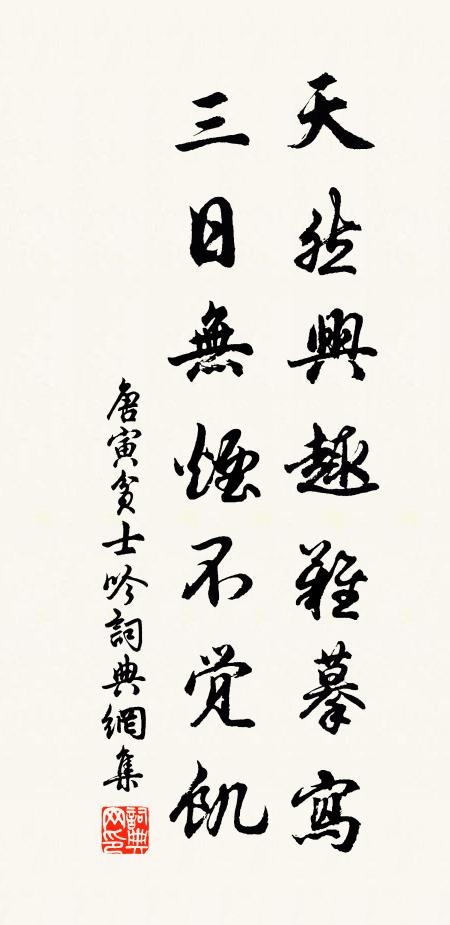 天然興趣難摹寫
三日無煙不覚飢
唐寅貧士吟詞典網集
詞典网印